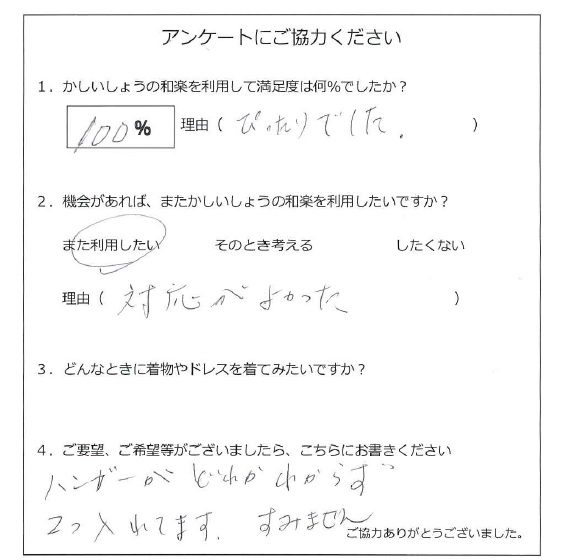 アンケートにご協力ください
1．かしいしょうの和楽を利用して満足度は何%でしたか？
100% 理由（ ぴったりでした. ）
2．機会があれば、またかしいしょうの和楽を利用したいですか？
また利用したい そのとき考える したくない
理由（ 対応がよかった ）
3．どんなときに着物やドレスを着てみたいですか？
4．ご要望、ご希望等がございましたら、こちらにお書きください
ハンガーがどれかわからず
2つ入れてます. すみません
ご協力ありがとうございました。